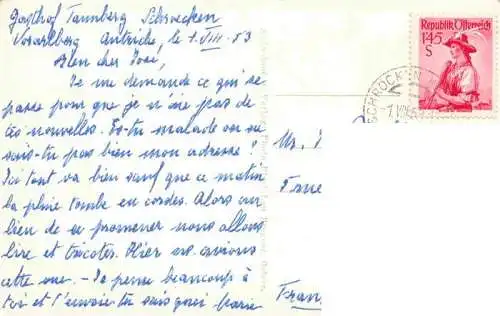 Gasthof Tannberg Schroecken
Vorarlberg Autriche, le 1. VIII. 53
Mon cher José,
Je me demande ce qui se
passe pour que je n'aie pas de
tes nouvelles. Es-tu malade ou ne
sais-tu pas bien mon adresse?
Ici tout va bien sauf que ce matin
la pluie tombe en cordes. Alors au
lieu de se promener nous allons
lire et tricoter. Hier avions
cette vue. - Je pense beaucoup à
toi et t'envoie tu sais quoi Marie
Republik Österreich
1.45
S
SCHRÖCKEN
Mr.
Fran